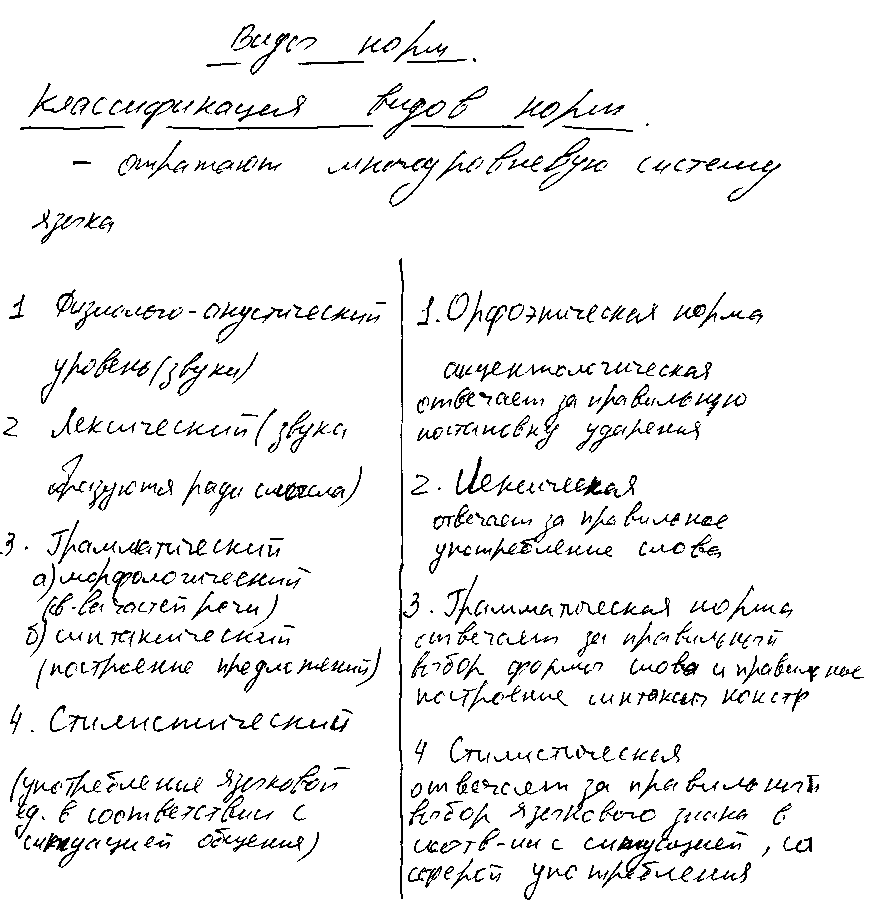 Виды норм.
Классификация видов норм.
- отражают многоуровневую систему
языка
1 Физиолого-акустический
уровень (звуки)
2 Лексический (звуки
образуются ради смысла)
3. Грамматический
а) морфологический
(св-ва частей речи)
б) синтаксический
(построение предложений)
4. Стилистический
(употребление языковой
ед. в соответствии с
ситуацией общения)
1. Орфоэпическая норма
акцентологическая
отвечает за правильную
постановку ударения
2. Лексическая
отвечает за правильное
употребление слова
3. Грамматическая норма
отвечает за правильный
выбор формы слова и правильное
построение синтаксич констр
4 Стилистическая
отвечает за правильный
выбор языкового знака в
соотв-ии с ситуацией, со
сферой употребления